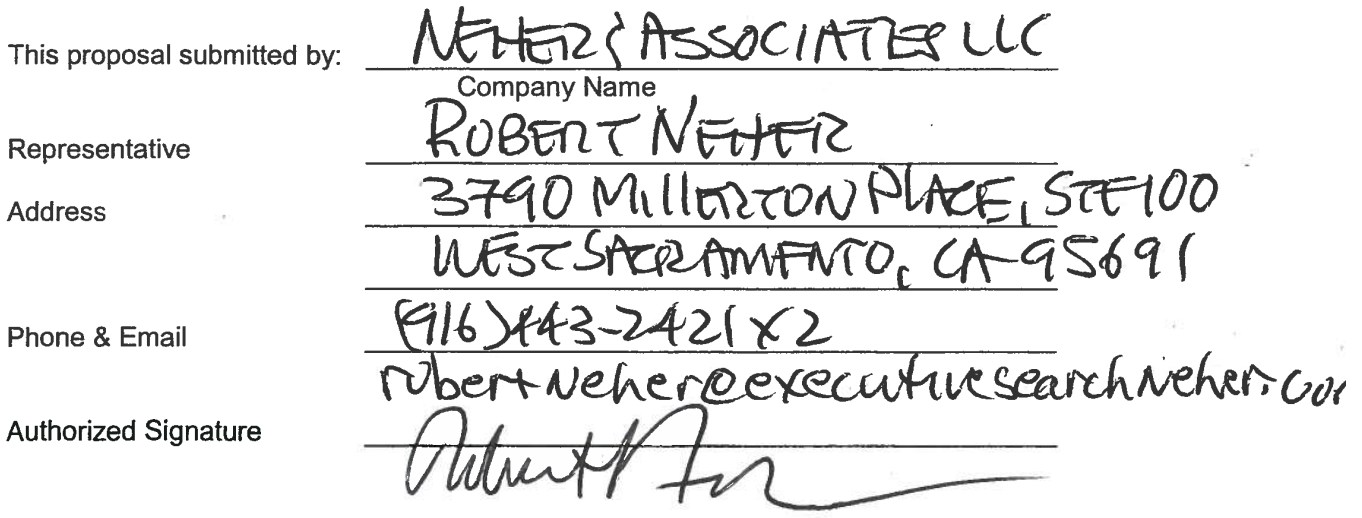 This proposal submitted by: NEHER & ASSOCIATES LLC
Company Name
Representative ROBERT NEHER
Address 3790 MILLERTON PLACE, STE 100
WEST SACRAMENTO, CA 95691
Phone & Email (916) 443-2421 x2
robertneher@executivesearchneher.com
Authorized Signature